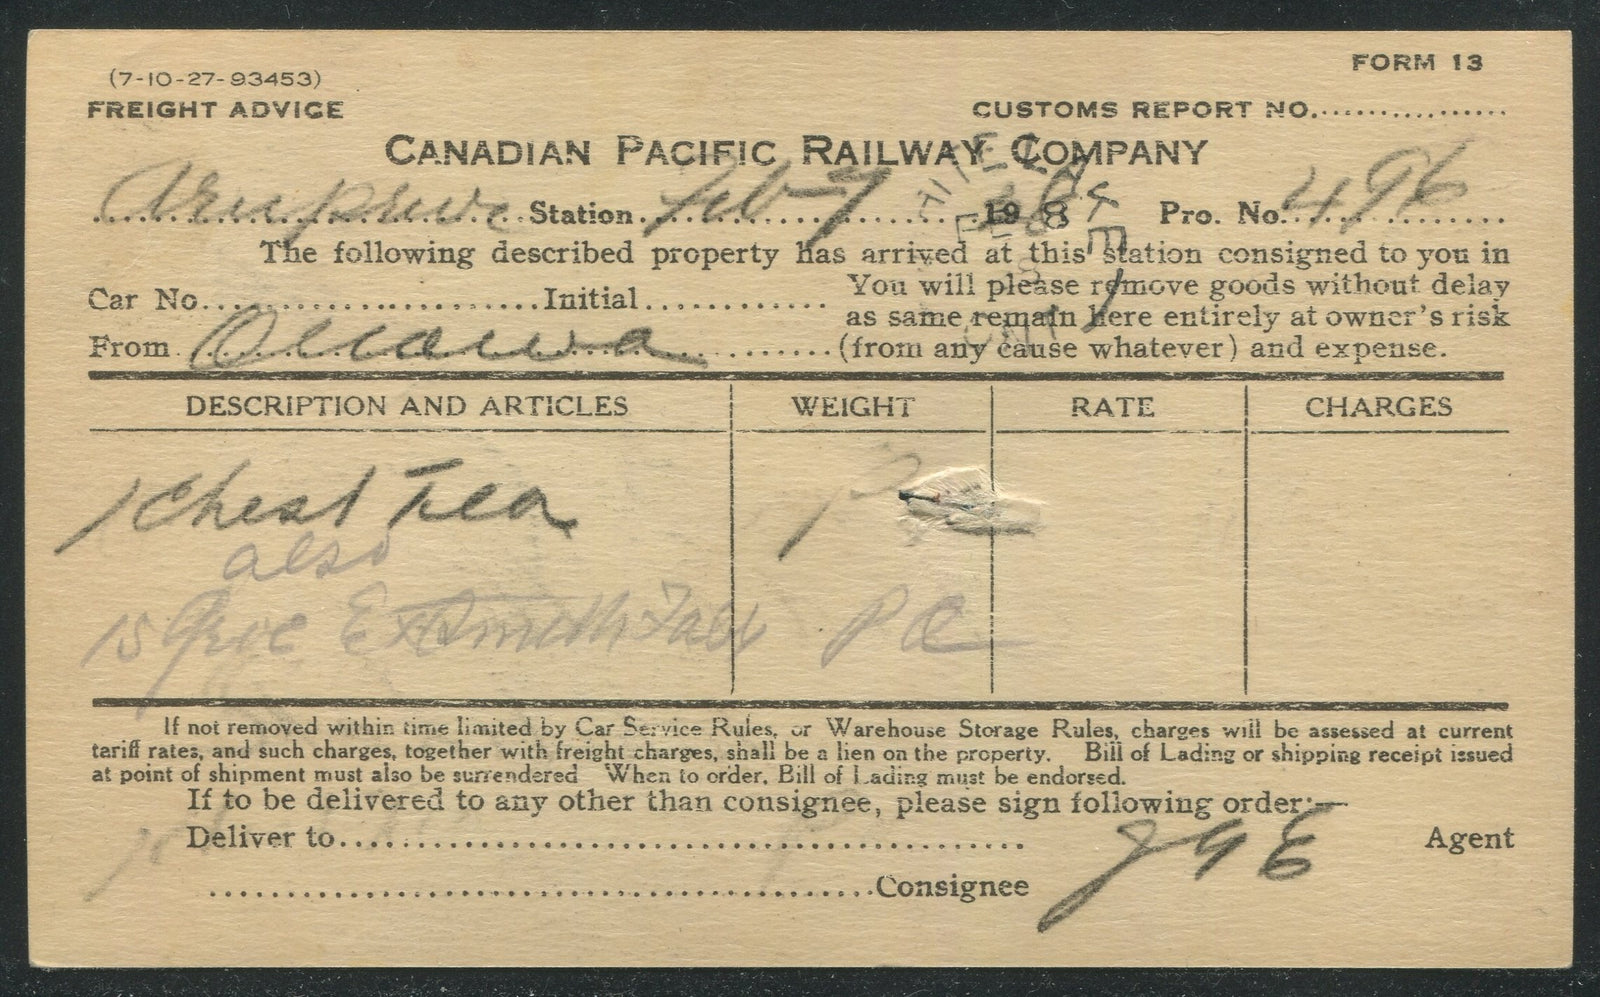 (7-10-27-93453)
FORM 13
FREIGHT ADVICE
CUSTOMS REPORT NO.
CANADIAN PACIFIC RAILWAY COMPANY
Arnprior Station Feb 7 198 Pro. No. 496
The following described property has arrived at this station consigned to you in
Car No. Initial
You will please remove goods without delay
as same remain here entirely at owner's risk
From Ottawa (from any cause whatever) and expense.
DESCRIPTION AND ARTICLES WEIGHT RATE CHARGES
1 Chest Tea P
also
15 PC
If not removed within time limited by Car Service Rules, or Warehouse Storage Rules, charges will be assessed at current
tariff rates, and such charges, together with freight charges, shall be a lien on the property. Bill of Lading or shipping receipt issued
at point of shipment must also be surrendered When to order, Bill of Lading must be endorsed.
If to be delivered to any other than consignee, please sign following order:—
Deliver to Agent
Consignee